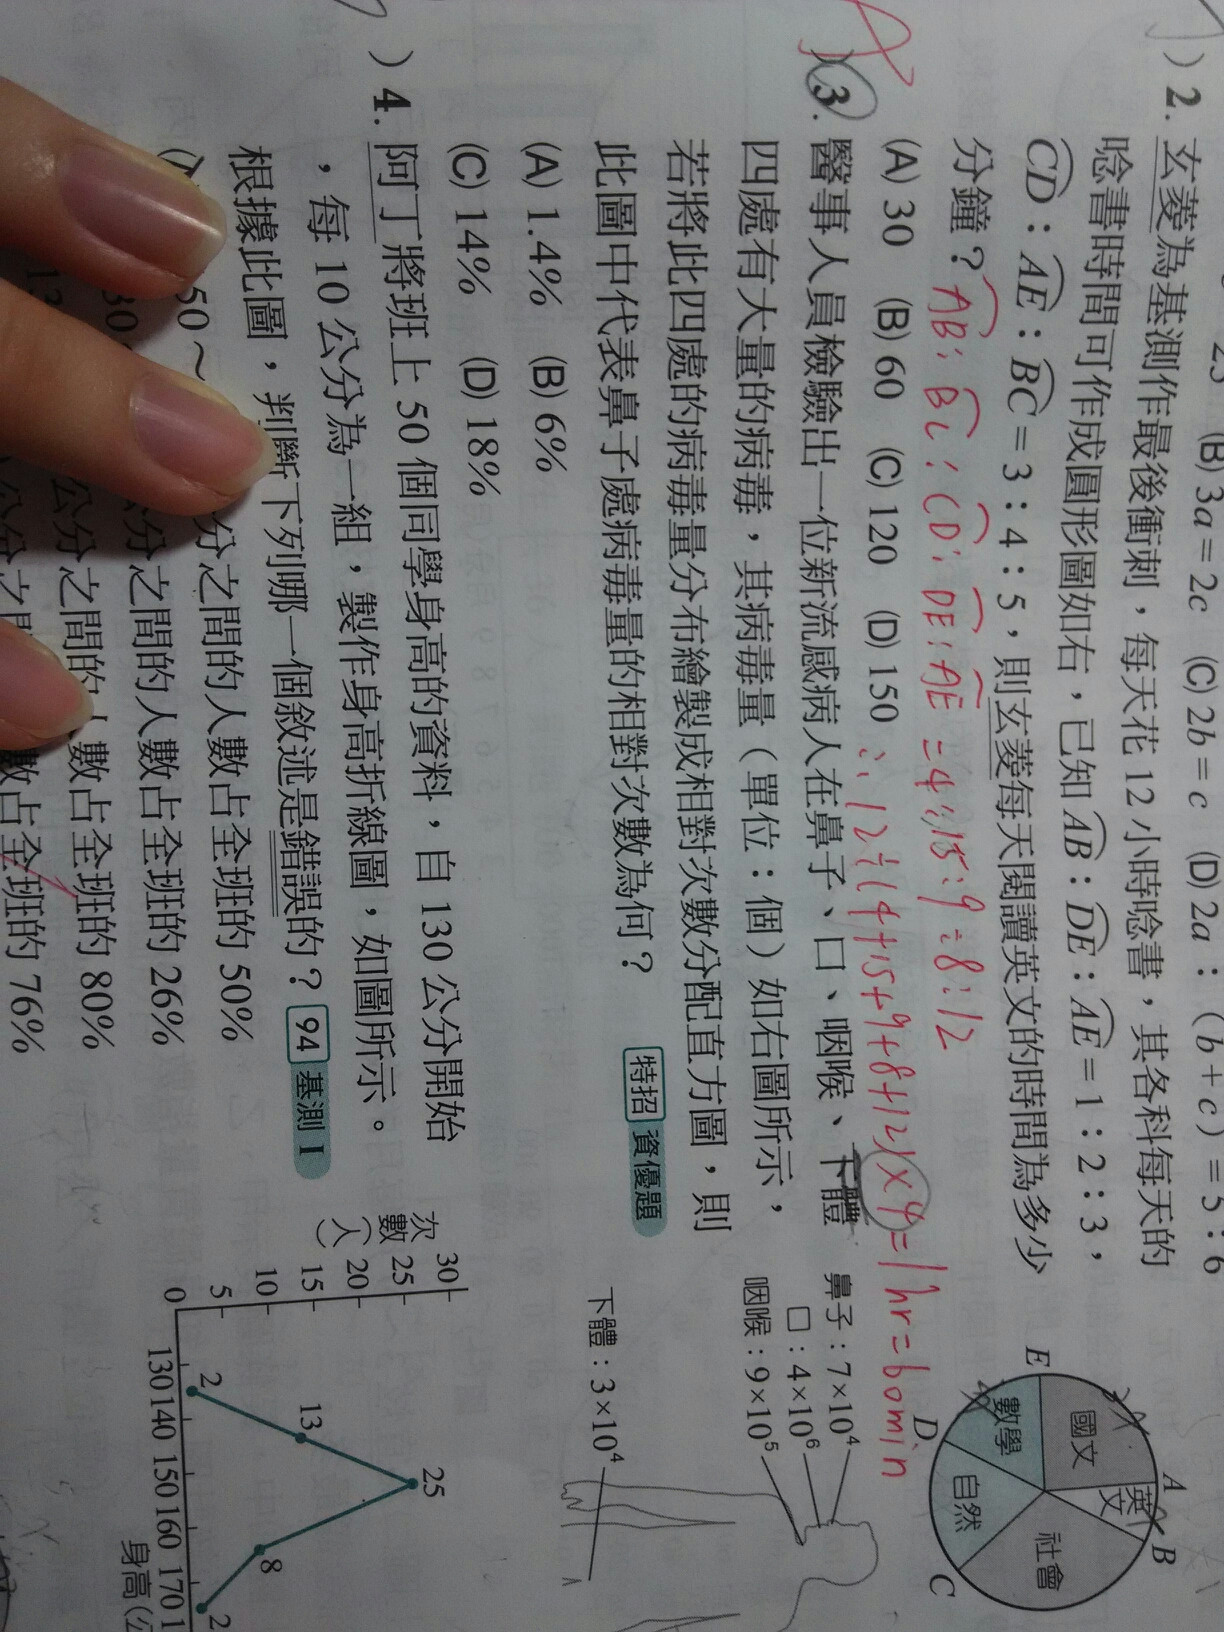 23 (B) 3a = 2c (C) 2b = c (D) 2a : (b + c) = 5 : 6
) 2. 玄菱為基測作最後衝刺，每天花 12 小時唸書，其各科每天的
唸書時間可作成圓形圖如右，已知 AB : DE : AE = 1 : 2 : 3，
CD : AE : BC = 3 : 4 : 5，則玄菱每天閱讀英文的時間為多少
分鐘？
AB : BC : CD : DE : AE = 4 : 15 : 9 : 8 : 12
(A) 30 (B) 60 (C) 120 (D) 150
∴ 12 ÷ (4+15+9+8+12) × 4 = 1hr = 60min
A
英文
B
國文
社會
E
數學
自然
D
C
) 3. 醫事人員檢驗出一位新流感病人在鼻子、口、咽喉、下體
四處有大量的病毒，其病毒量（單位：個）如右圖所示，
若將此四處的病毒量分布繪製成相對次數分配直方圖，則
此圖中代表鼻子處病毒量的相對次數為何？
特招 資優題
(A) 1.4% (B) 6%
(C) 14% (D) 18%
鼻子：7×10⁴
口：4×10⁶
咽喉：9×10⁵
下體：3×10⁴
) 4. 阿丁將班上 50 個同學身高的資料，自 130 公分開始
，每 10 公分為一組，製作身高折線圖，如圖所示。
根據此圖，判斷下列哪一個敘述是錯誤的？ 94 基測 I
50～
分之間的人數占全班的 50%
分之間的人數占全班的 26%
公分之間的人數占全班的 80%
數占全班的 76%
次數（人）
30
25
20
15
10
5
0
2
13
25
8
2
130 140 150 160 170 1
身高（公